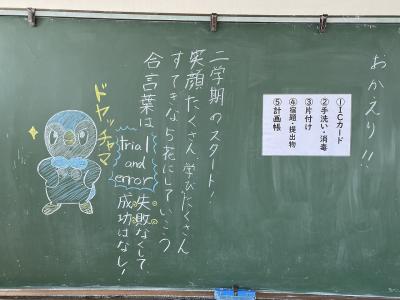 おかえり!!
①ICカード
②手洗い・消毒
③片付け
④宿題・提出物
⑤計画帳
二学期のスタート!
笑顔たくさん、学びたくさん
すてきな5花にしていこう
合言葉は
trial
and
error
失敗なくして
成功はなし!
ドヤッチャマ